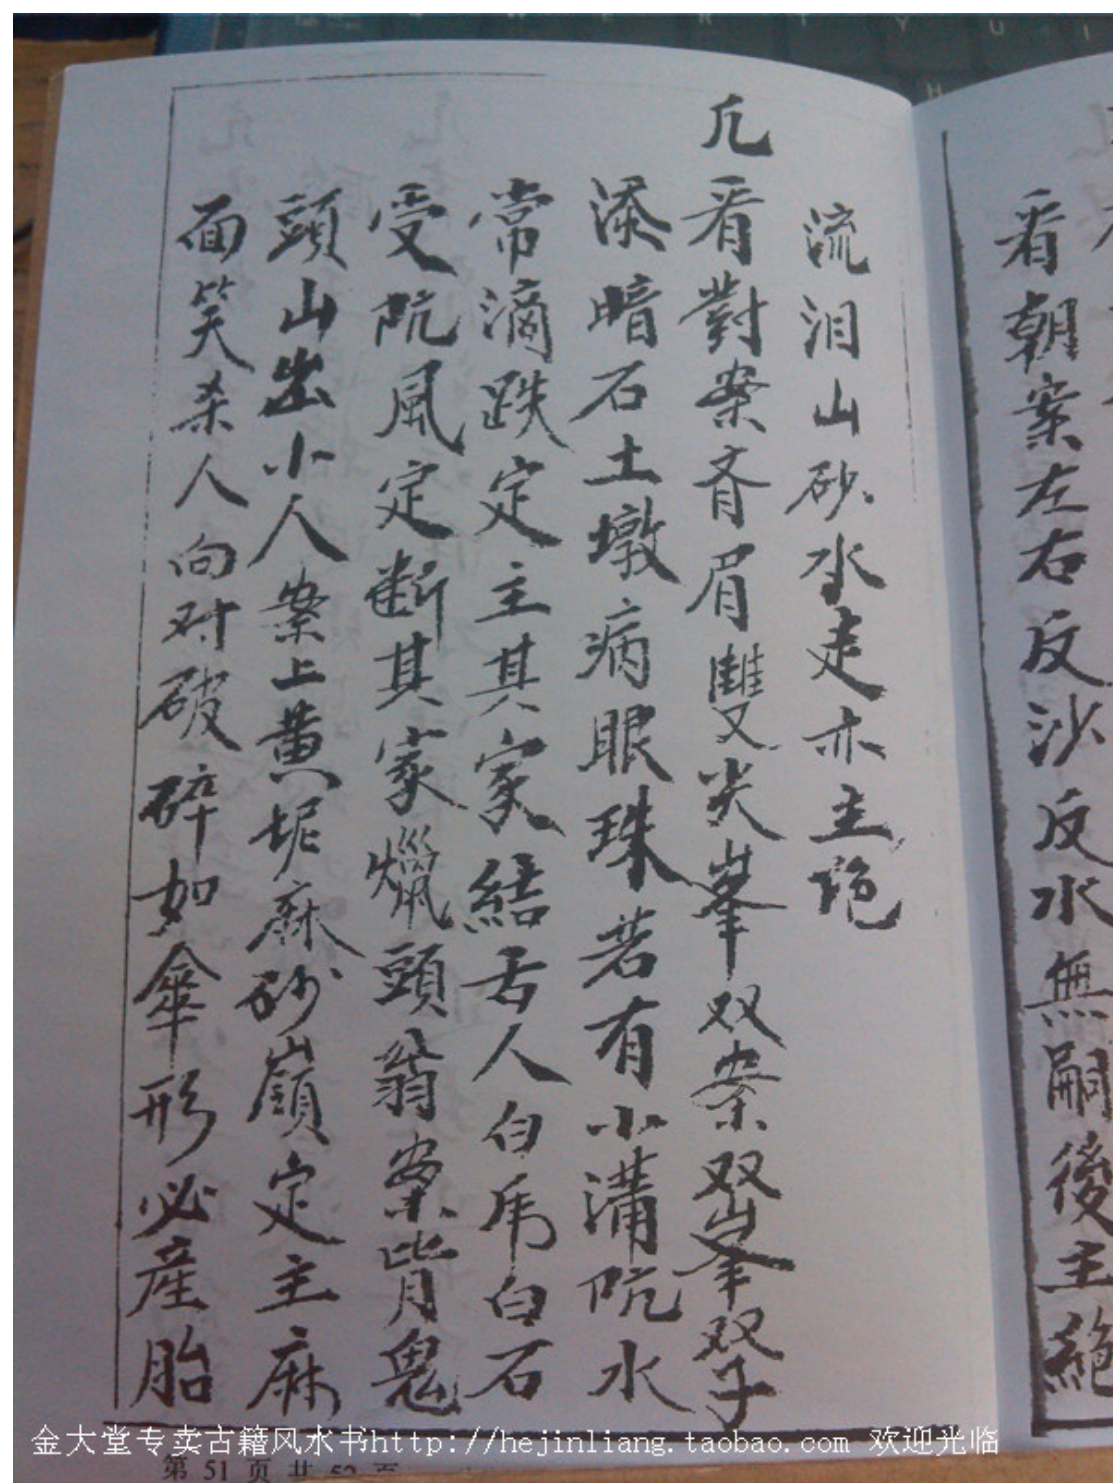 看朝案左右反沙反水無嗣後主絕
流泪山砂水走亦主絶
凣看對案齊眉雙尖峯双案双峯双子
添暗石土墩病眼珠若有小溝阬水
常滴跌定主其家結舌人白虎白石
受阬風定斷其家爛頭翁案背鬼
頭山出小人案上黄坭麻砂嶺定主麻
面笑杀人向对破碎如傘形必產胎
金大堂专卖古籍风水书http://hejinliang.taobao.com 欢迎光临
第 51 页 共 52 页